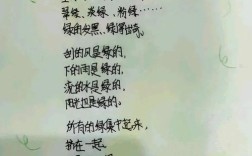 翠绿、淡绿、粉绿……
绿的发黑、绿得出奇。
刮的风是绿的,
下的雨是绿的,
流的水是绿的,
阳光也是绿的。
所有的绿集中起来,
挤在一起,